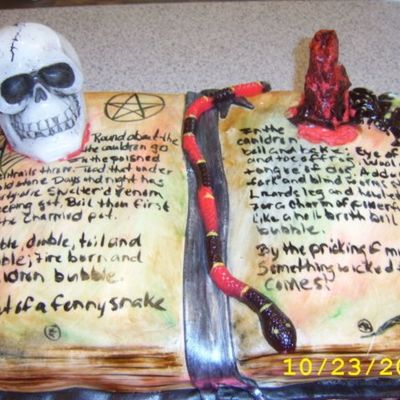 Round about the
the cauldren go
In the poisned
throw. Toad that under
stone. Days and night has
Swelter'd venom
got, Boil then first
Charmed pot.
double, toil and
fire born and
bubble.
of a fenny snake
In the
cauldren
boil and bake: Eye of
and toe of frog, Wool
tongue of dog, Adde
fork and blind worms
leg and howlet
For a charm of powerf
Like a hell broth boil
bubble.
By the pricking of m
Something wicked t
comes!
10/23/20